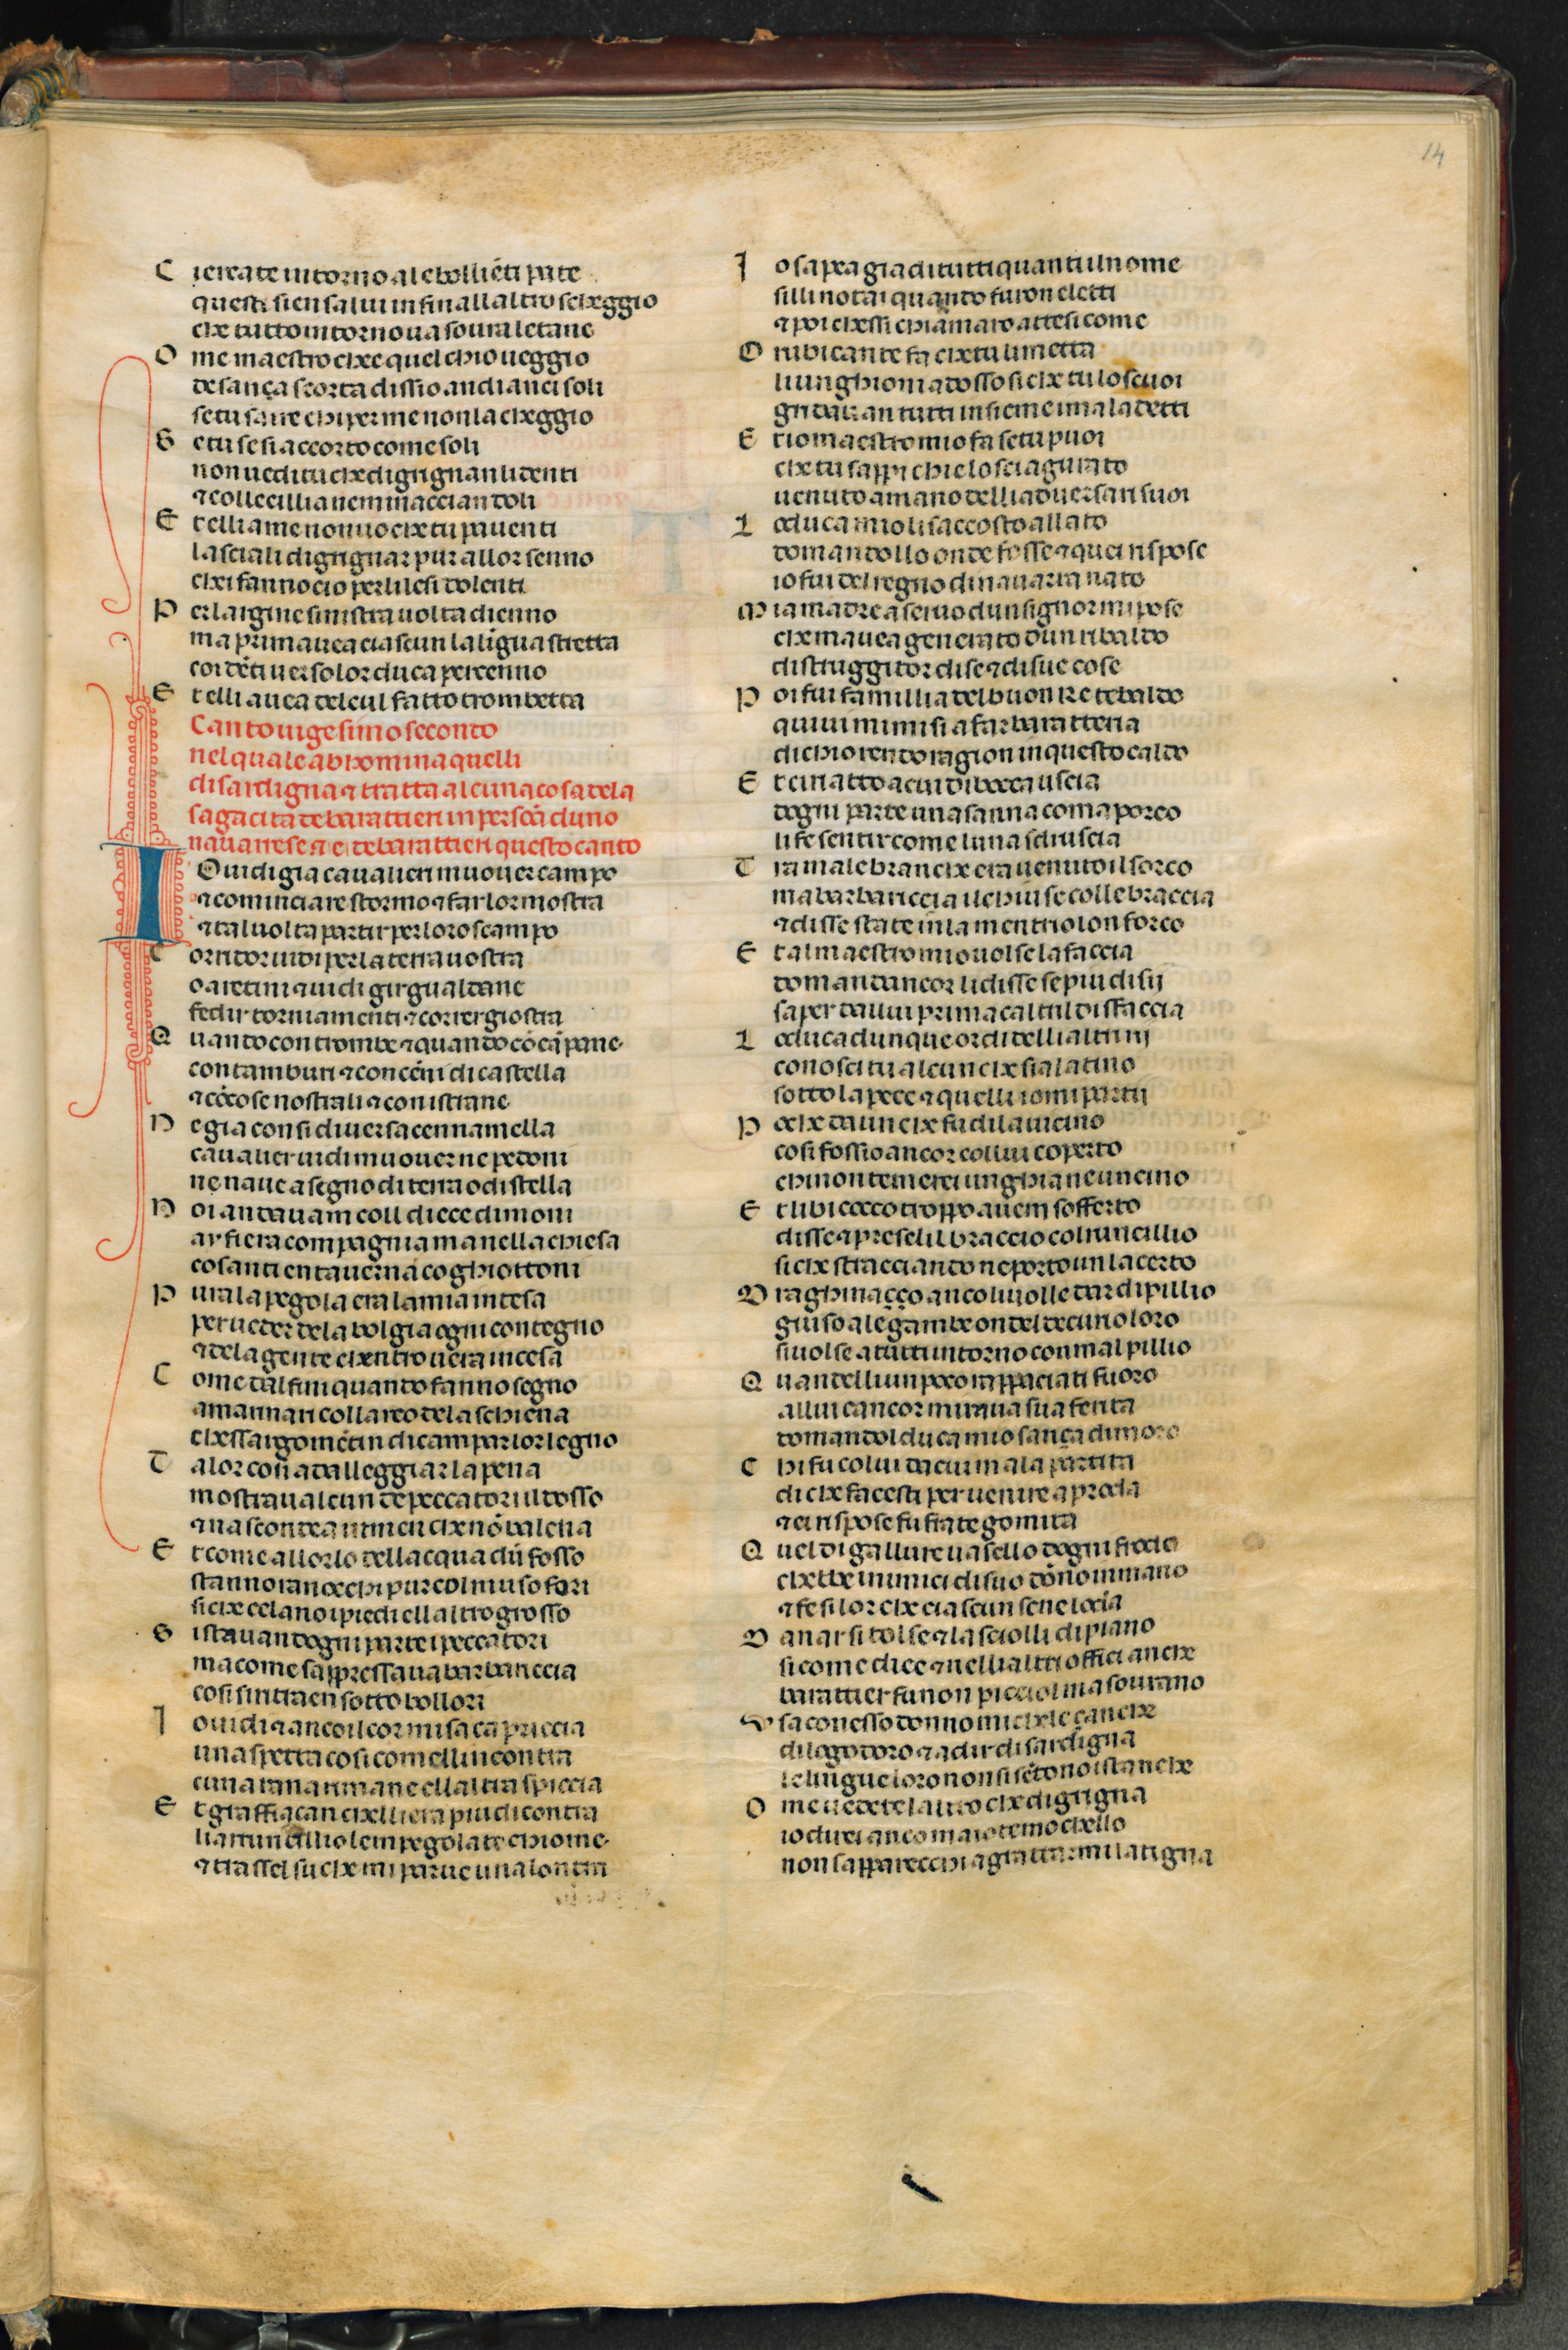 14
C iercate intorno alebolliẽti pane
questi sien salui infin allaltro scheggio
che tutto intorno ua soura letane
O me maestro che e quel chio ueggio
de sança scorta dissio andianci soli
se tu sa ire chi per me non la cheggio
S e tu se si accorto come soli
non uedi tu che digrignan li denti
⁊ colle cillia nen minaccian doli
E t elli a me non uo che tu pauenti
lasciali digrignar pur allor senno
chei fanno cio perlilesi dolenti
P er largine sinistra uolta dienno
ma prima auea ciascun la lĩgua stretta
coi dẽti uerso lor duca per cenno
E t elli auea del cul fatto trombetta
Canto uigesimo secondo
nel quale abhomina quelli
di sardigna ⁊ tratta alcuna cosa dela
sagacita de barattieri in persõa duno
nauarrese ⁊ e de barattieri questo canto
I O uidi gia caualieri muouer campo
⁊ cominciare stormo ⁊ far lor mostra
⁊ tal uolta partir per loro scampo
C orridor uidi per la terra uostra
o aretini ⁊ uidi gir gualdane
fedir torniamenti ⁊ correr giostra
Q uando con trombe ⁊ quando cõ cãpane
con tamburi ⁊ con cẽni di castella
⁊ cõ cose nostrali ⁊ con istrane
N e gia con si diuersa cennamella
caualier uidi muouer ne pedoni
ne naue a segno di terra o di stella
N oi andauam coll diece dimoni
ay fiera compagnia ma nella chiesa
co santi en tauerna co ghiottoni
P ur a la pegola era la mia intesa
per ueder de la bolgia ogni contegno
⁊ de la gente chentro uera incesa
C ome dalfini quando fanno segno
a marinari collarco de la schiena
chessargomẽtin di campar lor legno
T alor cosi ad alleggiar la pena
mostraual cun de peccatori il dosso
⁊ nascondea in men che nõ balena
E t come allorlo dellacqua dũ fosso
stanno i ranocchi pur col muso fori
si che celano i piedi ell altro grosso
S i stauan dogni parte i peccatori
ma come sappressaua barbariccia
cosi si ritraen sotto bollori
I o uidi ⁊ anco il cor mi sacapriccia
uno aspetta cosi com elli incontra
cuna rana rimane ell altra spiccia
E t graffiacan chelliera piu di contra
li arruncillio le mpegolate chiome
⁊ trassel su che mi parue una lontra
I o sapea gia di tutti quanti il nome
si lli notai quando furon eletti
⁊ poi chessi chiamaro attesi come
O rubicante fa che tu li metta
li unghioni a dosso si che tu lo scuoi
gridauan tutti insieme i maladetti
E t io maestro mio fa se tu puoi
che tu sappi chi e lo sciagurato
uenuto a mano delli aduersari suoi
L o duca mio li saccosto allato
domandollo onde fosse ⁊ quei rispose
io fui del regno di nauarra nato
M ia madre a seruo dun signor mi pose
che mauea generato dun ribaldo
distruggitor di se ⁊ di sue cose
P oi fui famillia del buon re tebaldo
quiui mi misi a far baratteria
di chio rendo ragion in questo caldo
E t ciriatto a cui di bocca uscia
dogni parte una sanna coma porco
li fe sentir come luna sdruscia
T ra male branche era uenuto il sorco
ma barbariccia il chiuse colle braccia
⁊ disse state in la mentrio lo nforco
E t al maestro mio uolse la faccia
domanda ancor li disse se piu disij
saper da llui prima caltri l disfaccia
L o duca dunque or di delli altri rij
conosci tu alcun che sia latino
sotto la pece ⁊ quelli io mi partij
P oche da un che fu di la uicino
cosi fossio ancor collui coperto
chi non temerei unghia ne uncino
E t libicocco troppo auem sofferto
disse ⁊ preseli l braccio col runcillio
si che stracciando ne porto un lacerto
D raghinaçço anco li uolle dar di pillio
giuso a le gambe ondel decurio loro
si uolse a tutti intorno con mal pillio
Q uandelli un poco rappaciati fuoro
a llui cancor miraua sua ferita
domandol duca mio sança dimoro
C hi fu colui da cui mala partita
di che facesti per uenire a proda
⁊ ei rispose fu frate gomita
Q uel di gallure uasello dogni froda
chebbe i nimici di suo dõno in mano
⁊ fe si lor che ciascun se ne loda
D anar si tolse ⁊ lasciolli di piano
si come dice ⁊ nelli altri offici anche
barattier fu non picciol ma sourano
U sa con esso donno michele çanche
di logodoro ⁊ a dir di sardigna
le lingue loro non si sẽtono istanche
O me uedete laltro che digrigna
io direi anco ma io temo chello
non sapparecchi a grattarmi la tigna